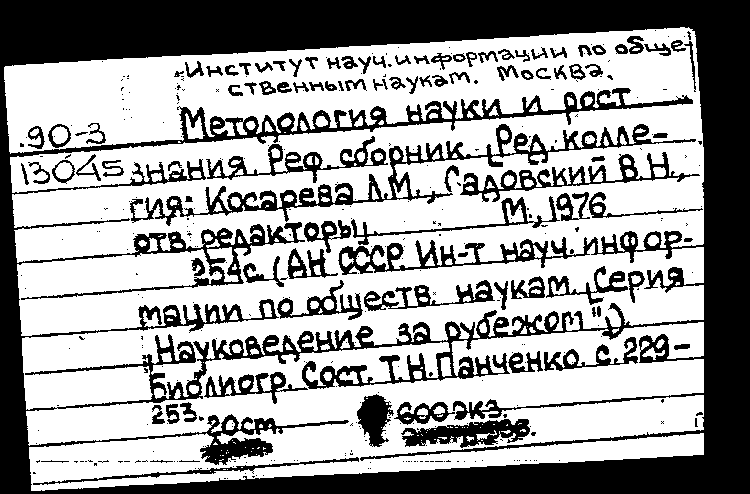 Институт науч. информации по обще-
ственным наукам. Москва.
90-3
Методология науки и рост
13045
знания. Реф. сборник. [Ред. колле-
гия: Косарева Л.М., Садовский В.Н.,
отв. редакторы]. М., 1976.
254с. (АН СССР. Ин-т науч. инфор-
мации по обществ. наукам. [Серия
"Науковедение за рубежом"]).
Библиогр. Сост. Т.Н. Панченко. с. 229-
253.
20ст. 600 экз.